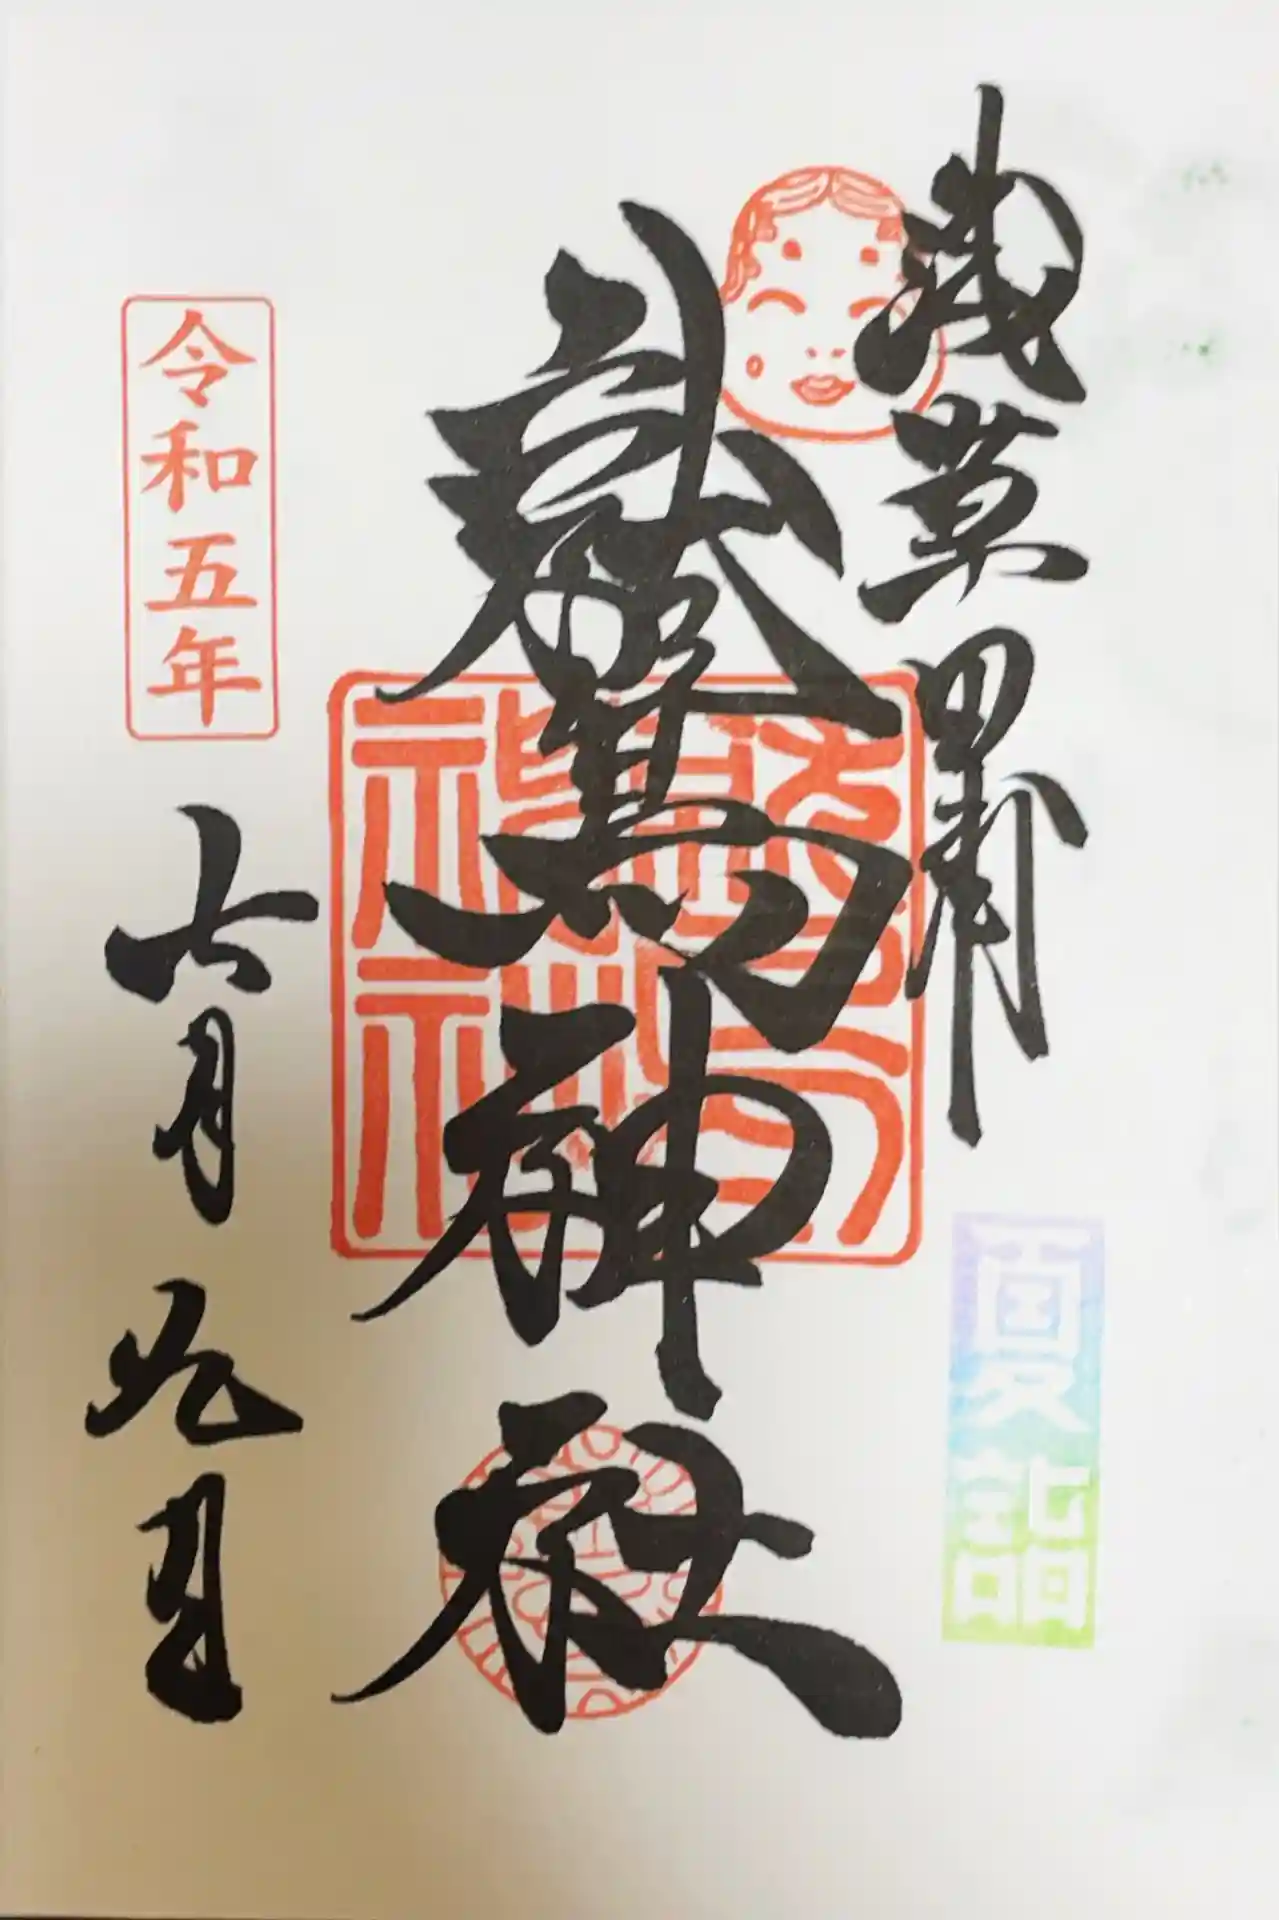 浅草田甫
鷲神社
鷲神社
夏詣
令和五年
七月九日